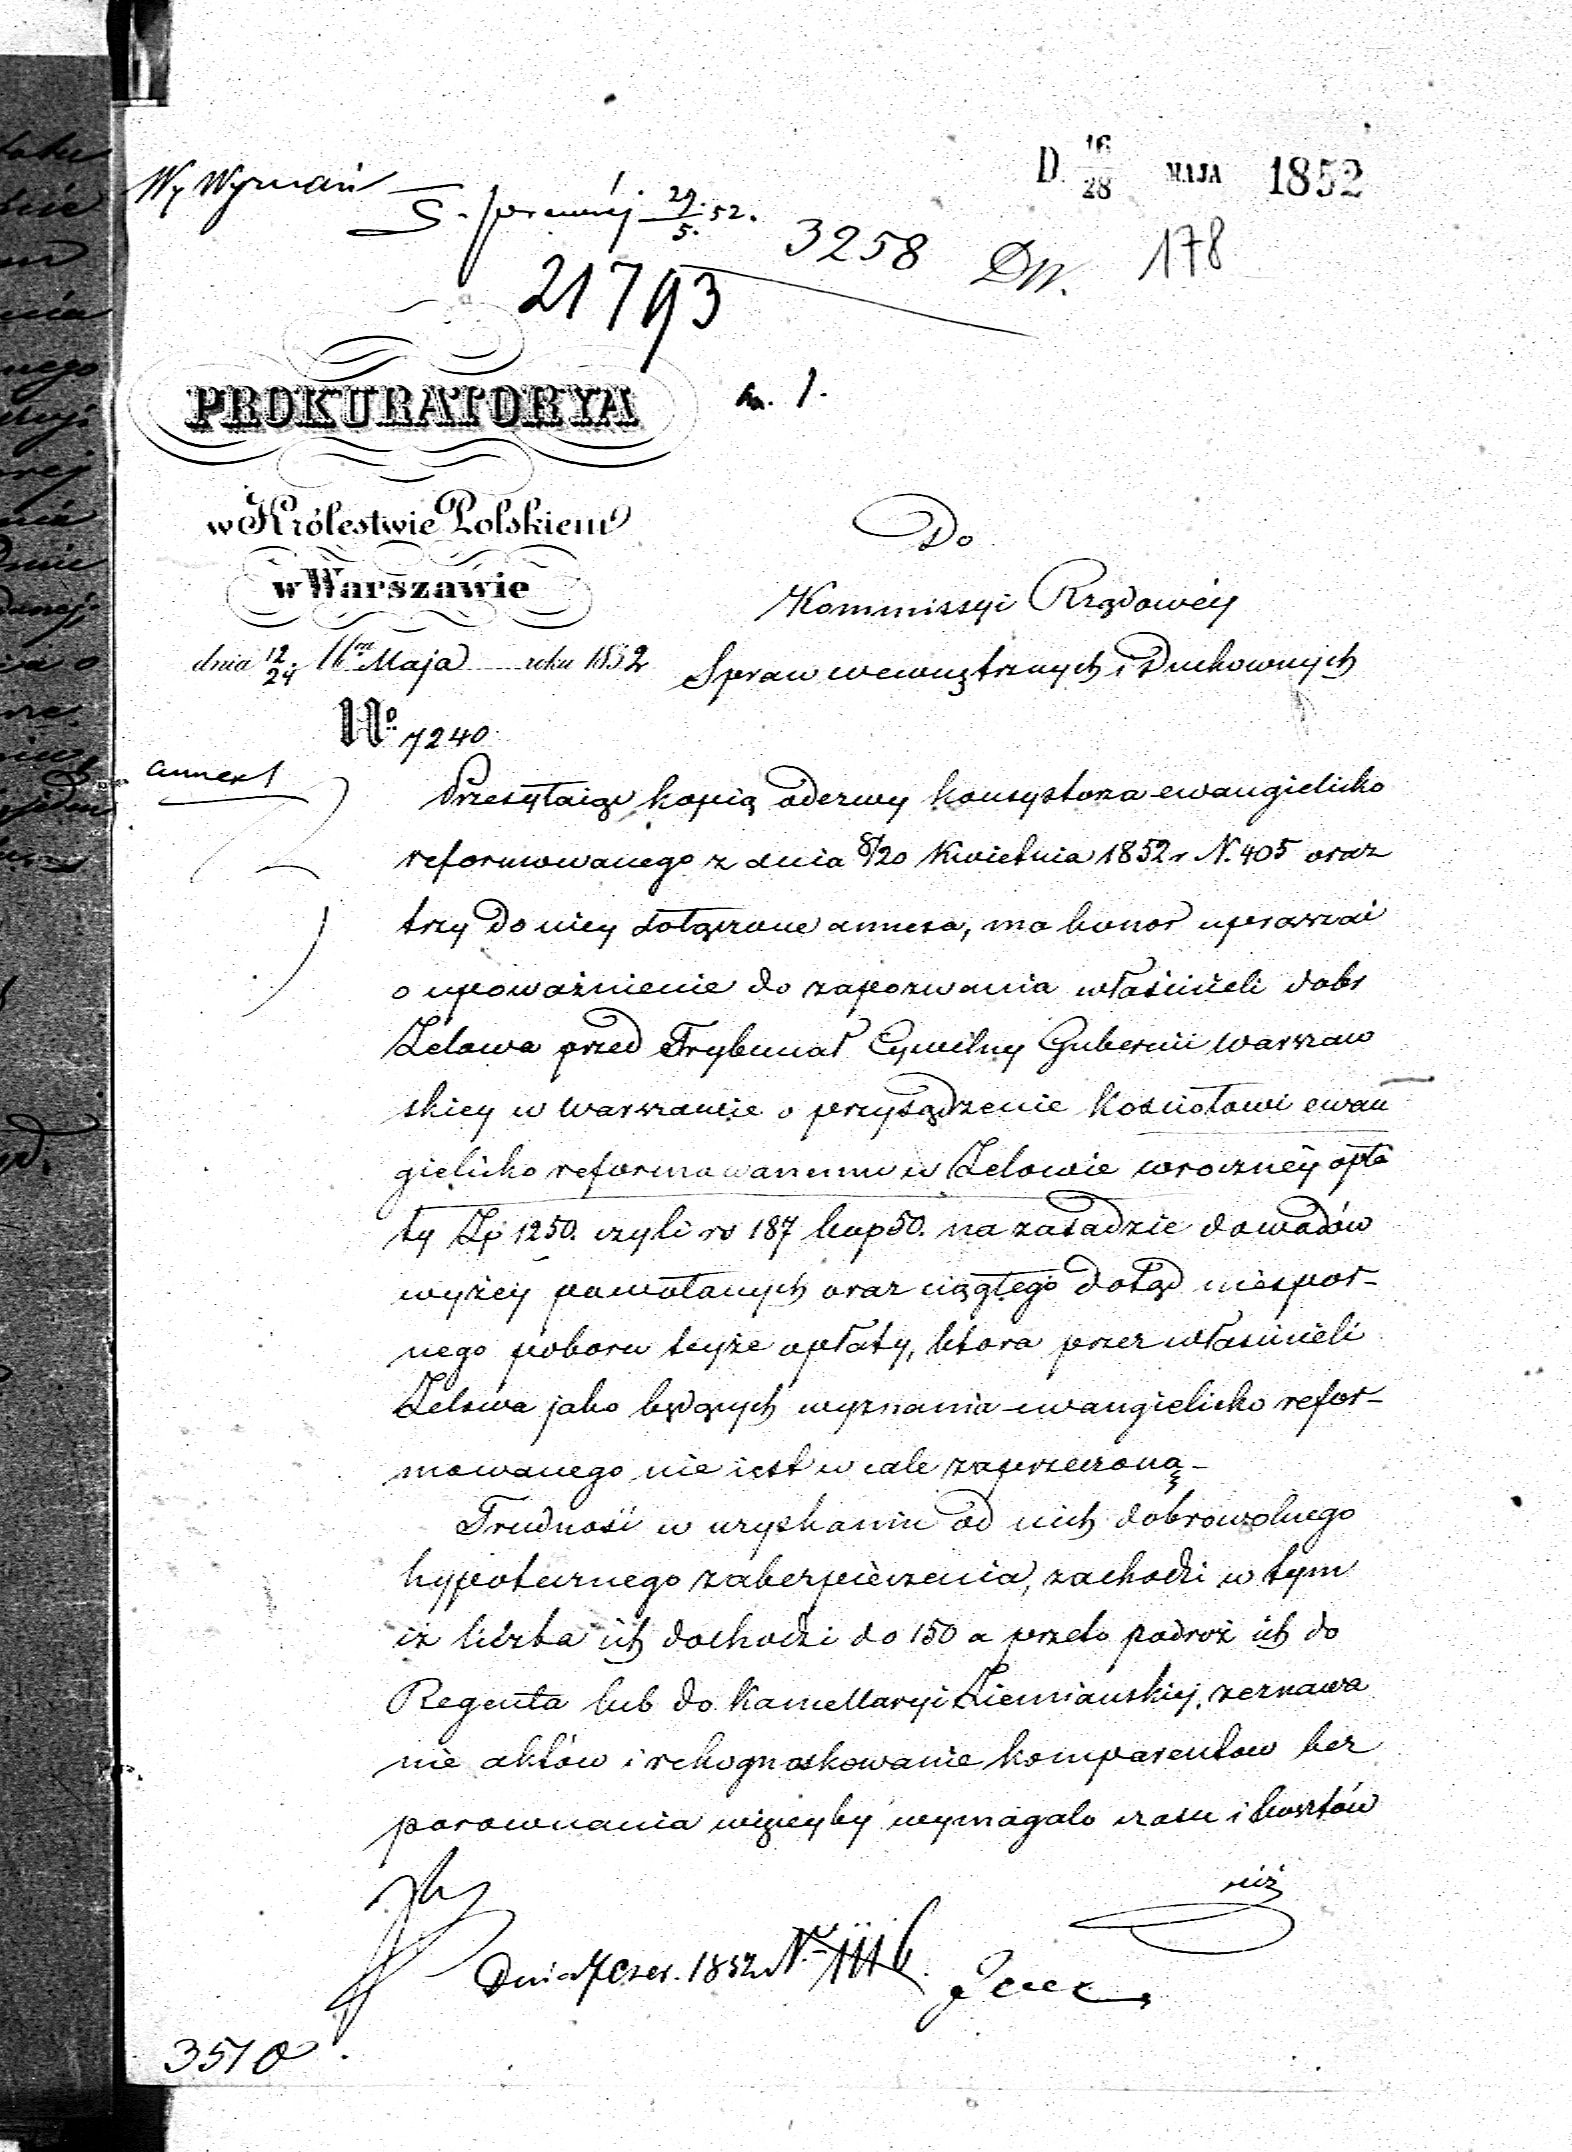 Wy Wyznań
D. 16/28 MAJA 1852
S. prawnéj 29/5. 52.
3258 DW. 178
21793
PROKURATORYA
a. 1.
w Królestwie Polskiem
w Warszawie
dnia 12/24 Maja roku 1852
No 7240
Do
Kommissyi Rządowéy
Spraw wewnętrznych i Duchownych
annex 1
Przesyłaiąc kopią odezwy konsystorza ewangielicko
reformowanego z dnia 8/20 Kwietnia 1852 r N. 405 oraz
trzy do niey dołączone annexa, ma honor upraszać
o upoważnienie do zapozwania właścicieli dobr
Zelowa przed Trybunał Cywilny Gubernii Warszaw
skiey w Warszawie o przysądzenie Kościołowi ewan
gielicko reformowanemu w Zelowie wroczney opła
ty Zp 1250. czyli rs 187 kop 50. na zasadzie dowodów
wyżey powołanych oraz ciągłego dotąd niespor-
nego poboru teyże opłaty, ktora przez właścicieli
Zelowa jako będących wyznania ewangielicko refor-
mowanego nie iest w cale zaprzeczoną-
Trudność w uzyskaniu od nich dobrowolnego
hypotecznego zabezpieczenia, zachodzi w tym
iż liczba ich dochodzi do 150 a przeto podroż ich do
Regenta lub do Kancellaryi Ziemiańskiej, zeznawa
nie aktów i rekognoskowanie komparentow bez
porownania więceyby wymagało czasu i kosztów
niż
Dnia 7 Czer. 1852 N.
3510